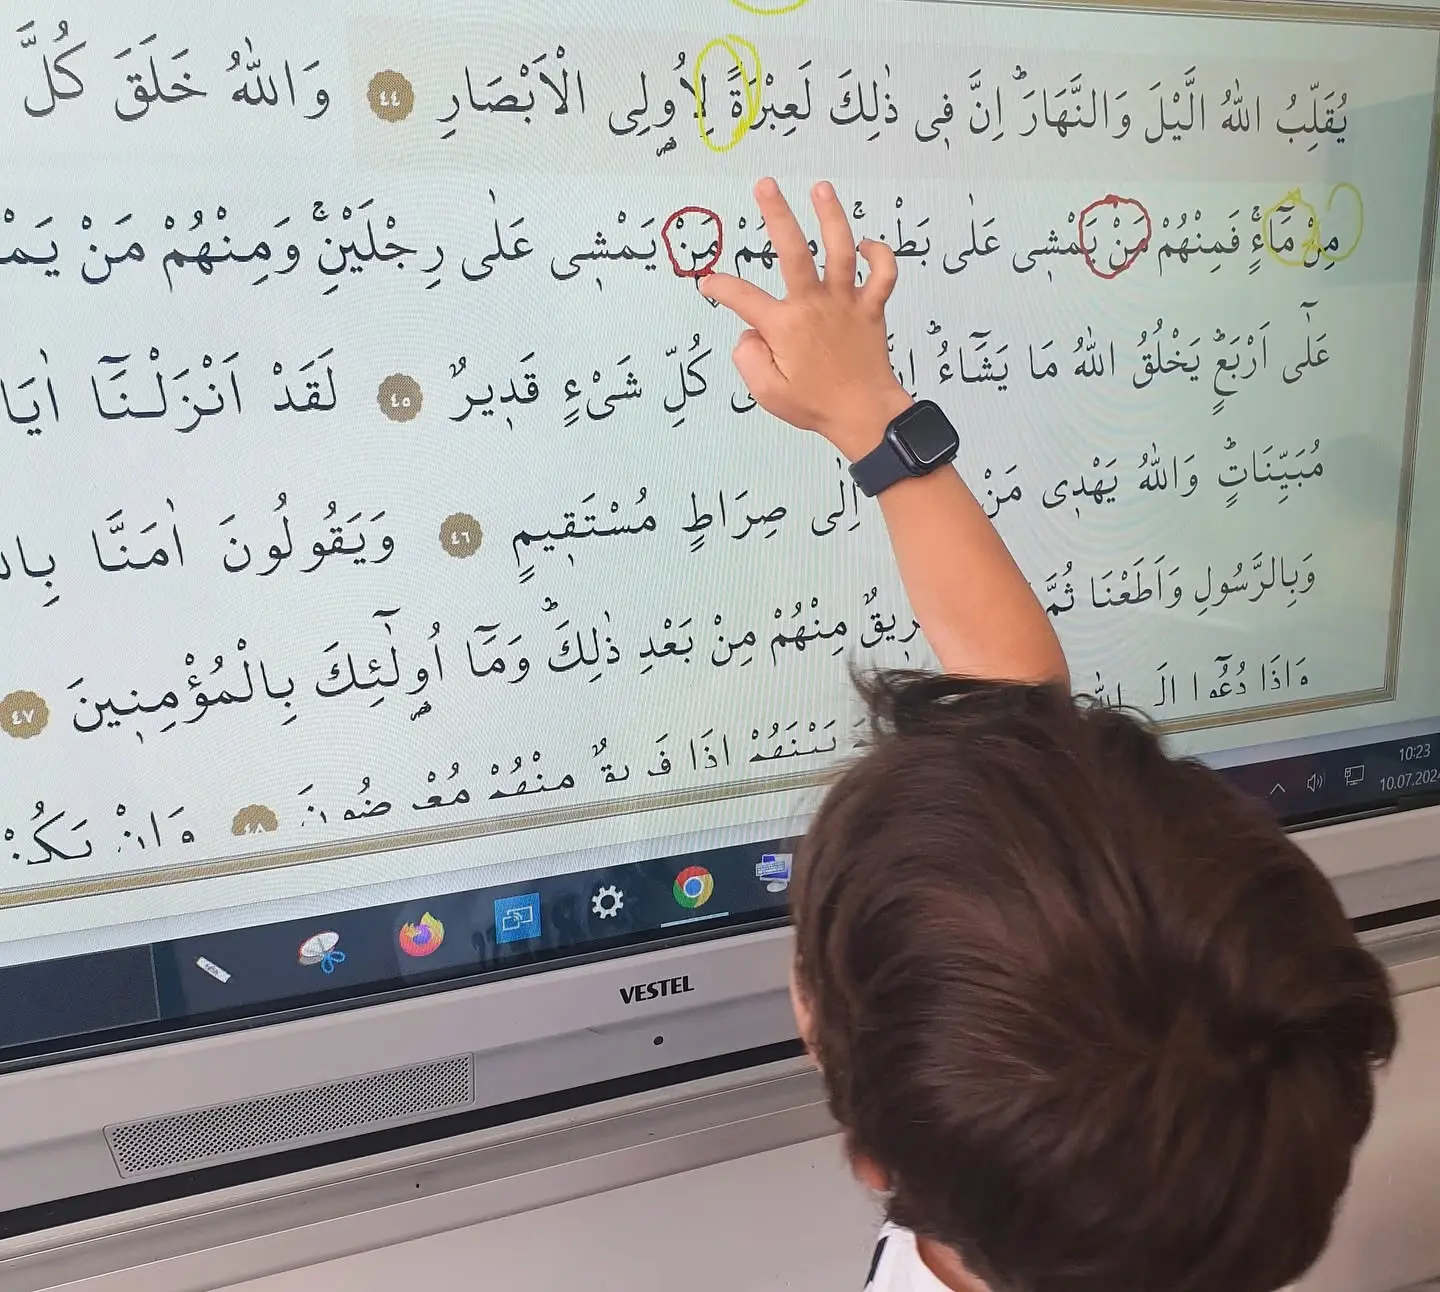 يُقَلِّبُ اللّٰهُ الَّيْلَ وَالنَّهَارَۜ اِنَّ ف۪ي ذٰلِكَ لَعِبْرَةً لِاُو۬لِي الْاَبْصَارِ ٤٤ وَاللّٰهُ خَلَقَ كُلَّ
مِنْ مَٓاءٍۚ فَمِنْهُمْ مَنْ يَمْش۪ي عَلٰى مَنْ يَمْش۪ي عَلٰى رِجْلَيْنِۚ وَمِنْهُمْ مَنْ
عَلٰٓى اَرْبَعٍۜ يَخْلُقُ اللّٰهُ مَا يَشَٓاءُۜ كُلِّ شَيْءٍ قَد۪يرٌ ٤٥ لَقَدْ اَنْزَلْنَٓا
مُبَيِّنَاتٍۜ وَاللّٰهُ يَهْد۪ي مَنْ اِلٰى صِرَاطٍ مُسْتَق۪يمٍ ٤٦ وَيَقُولُونَ اٰمَنَّا
وَبِالرَّسُولِ وَاَطَعْنَا ثُمَّ مِنْهُمْ مِنْ بَعْدِ ذٰلِكَۜ وَمَٓا اُو۬لٰٓئِكَ بِالْمُؤْمِن۪ينَ ٤٧
وَاِذَا دُعُٓوا بَيْنَهُمْ اِذَا فَر۪يقٌ مِنْهُمْ مُعْرِضُونَ ٤٨ وَاِنْ يَكُنْ
10:23
VESTEL